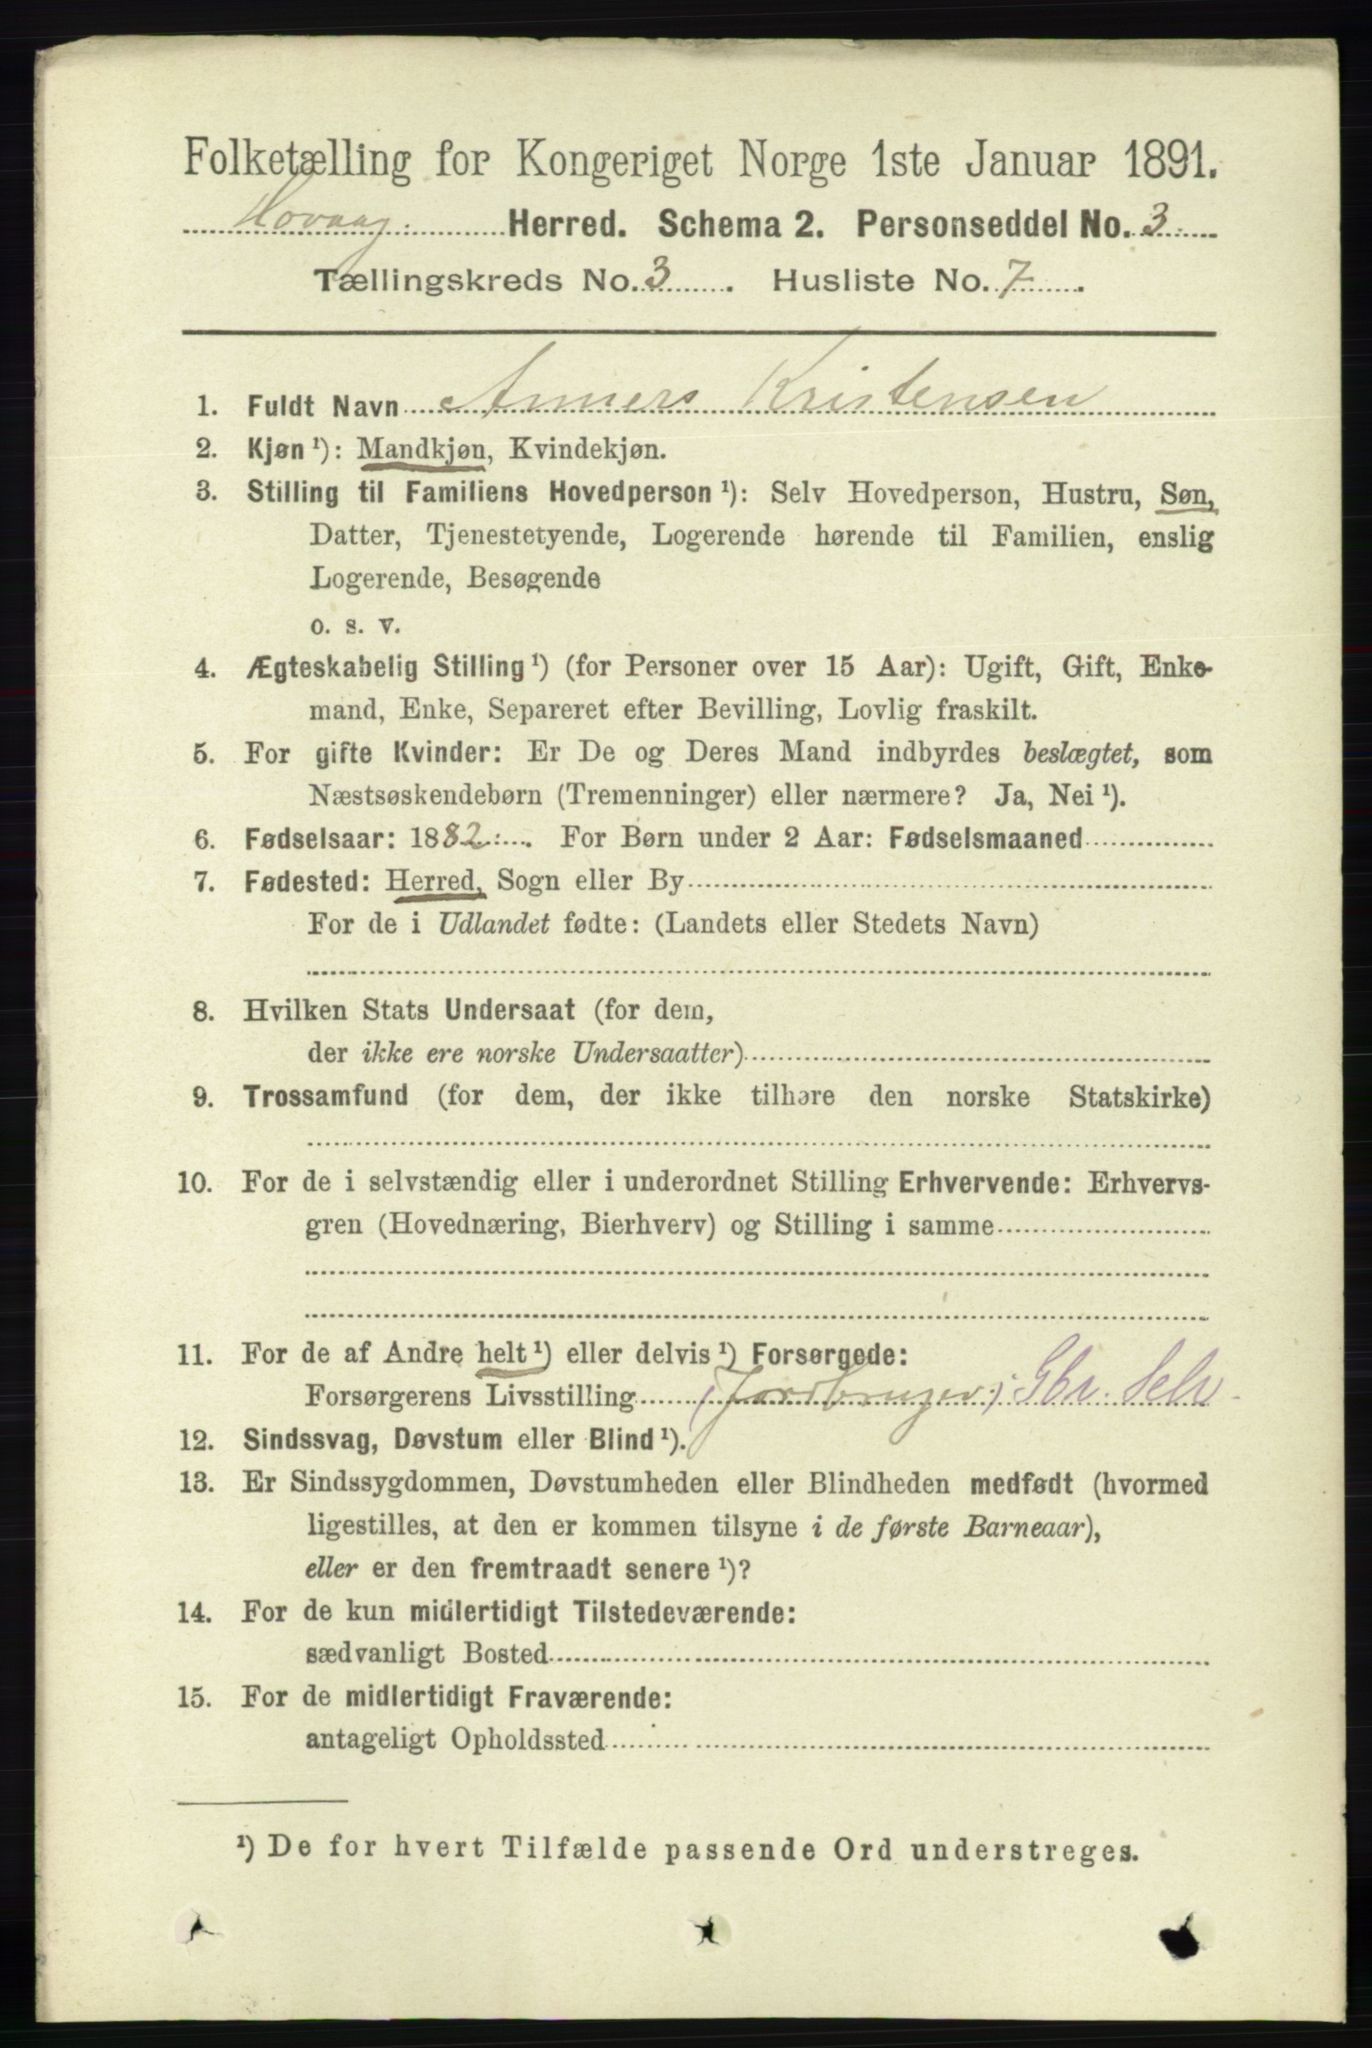 Folketælling for Kongeriget Norge 1ste Januar 1891.
Hovaag. Herred. Schema 2. Personseddel No. 3
Tællingskreds No. 3. Husliste No. 7.
1. Fuldt Navn Anners Kristensen
2. Kjøn ¹): Mandkjøn, Kvindekjøn.
3. Stilling til Familiens Hovedperson ¹): Selv Hovedperson, Hustru, Søn,
Datter, Tjenestetyende, Logerende hørende til Familien, enslig
Logerende, Besøgende
o. s. v.
4. Ægteskabelig Stilling ¹) (for Personer over 15 Aar): Ugift, Gift, Enke-
mand, Enke, Separeret efter Bevilling, Lovlig fraskilt.
5. For gifte Kvinder: Er De og Deres Mand indbyrdes beslægtet, som
Næstsøskendebørn (Tremenninger) eller nærmere? Ja, Nei ¹).
6. Fødselsaar: 1882. For Børn under 2 Aar: Fødselsmaaned
7. Fødested: Herred, Sogn eller By
For de i Udlandet fødte: (Landets eller Stedets Navn)
8. Hvilken Stats Undersaat (for dem,
der ikke ere norske Undersaatter)
9. Trossamfund (for dem, der ikke tilhøre den norske Statskirke)
10. For de i selvstændig eller i underordnet Stilling Erhvervende: Erhvervs-
gren (Hovednæring, Bierhverv) og Stilling i samme
11. For de af Andre helt ¹) eller delvis ¹) Forsørgede:
Forsørgerens Livsstilling (Jordbruger) Gbr. Selv
12. Sindssvag, Døvstum eller Blind ¹).
13. Er Sindssygdommen, Døvstumheden eller Blindheden medfødt (hvormed
ligestilles, at den er kommen tilsyne i de første Barneaar),
eller er den fremtraadt senere ¹)?
14. For de kun midlertidigt Tilstedeværende:
sædvanligt Bosted
15. For de midlertidigt Fraværende:
antageligt Opholdssted
¹) De for hvert Tilfælde passende Ord understreges.